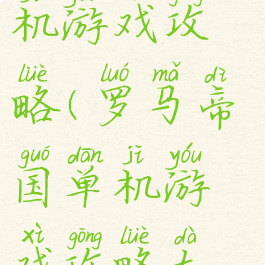 机游戏攻
lüè luó mǎ dì
略(罗马帝
guó dān jī yóu
国单机游
xì gōng lüè dà
戏攻略大